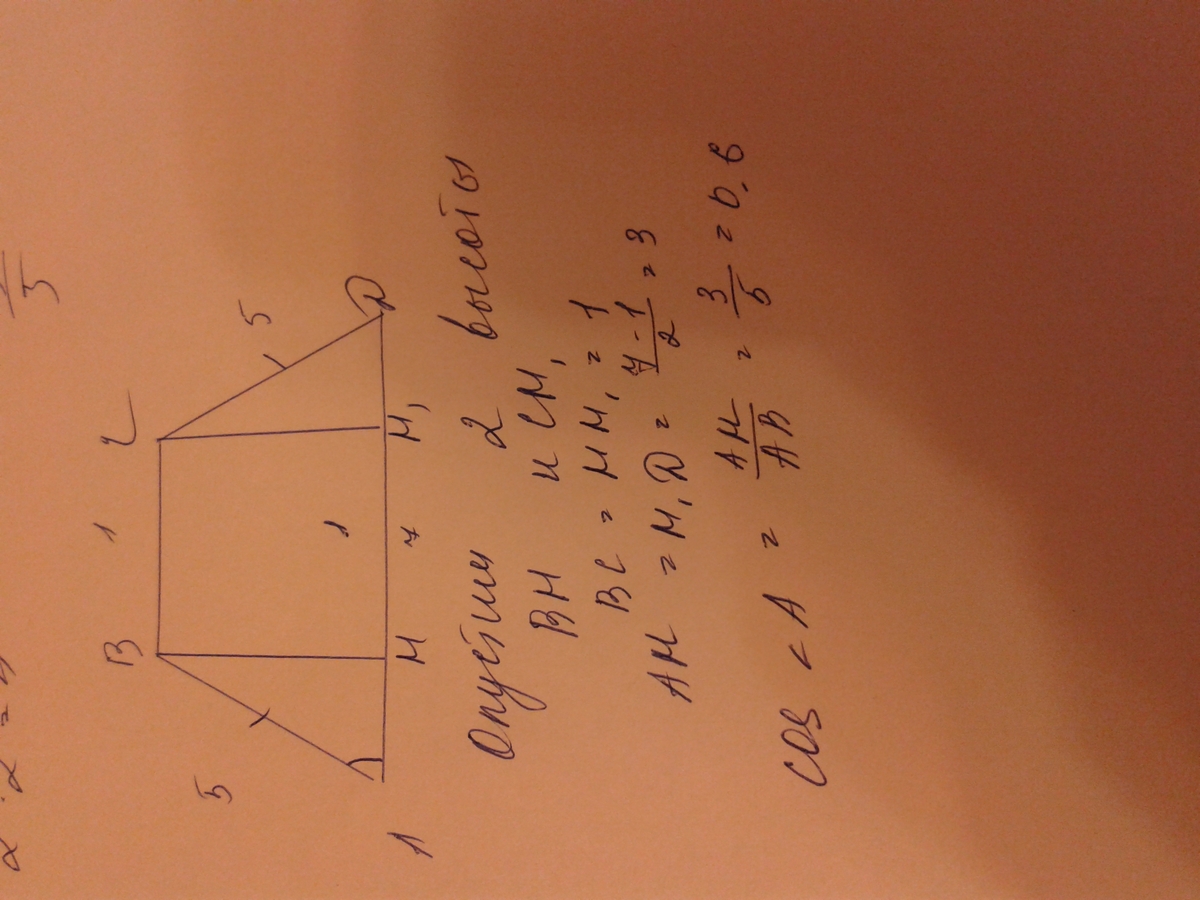 2 · 2 =
5
B 1 C
5 5
1
A H 7 H₁ D
Опустим 2 высоты
BH и CH₁
BC = HH₁ = 1
AH = H₁D = (7-1)/2 = 3
cos <A = AH/AB = 3/5 = 0.6